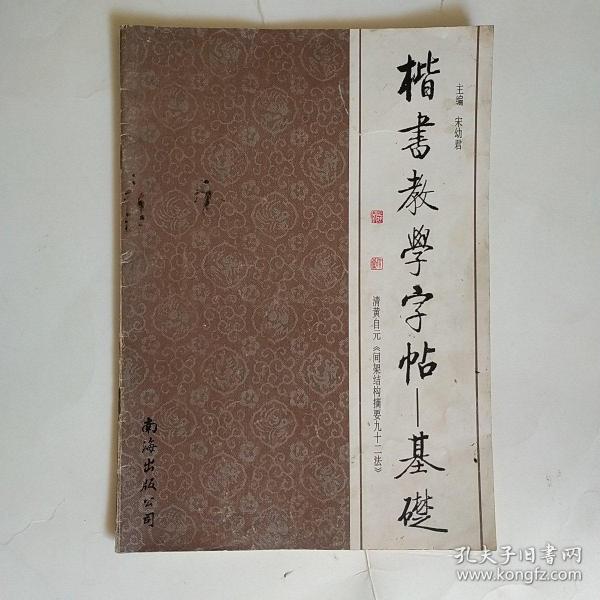 主编 宋幼君
楷書教學字帖—基礎
清黄自元《间架结构摘要九十二法》
南海出版公司
孔夫子旧书网
www.kongfz.com